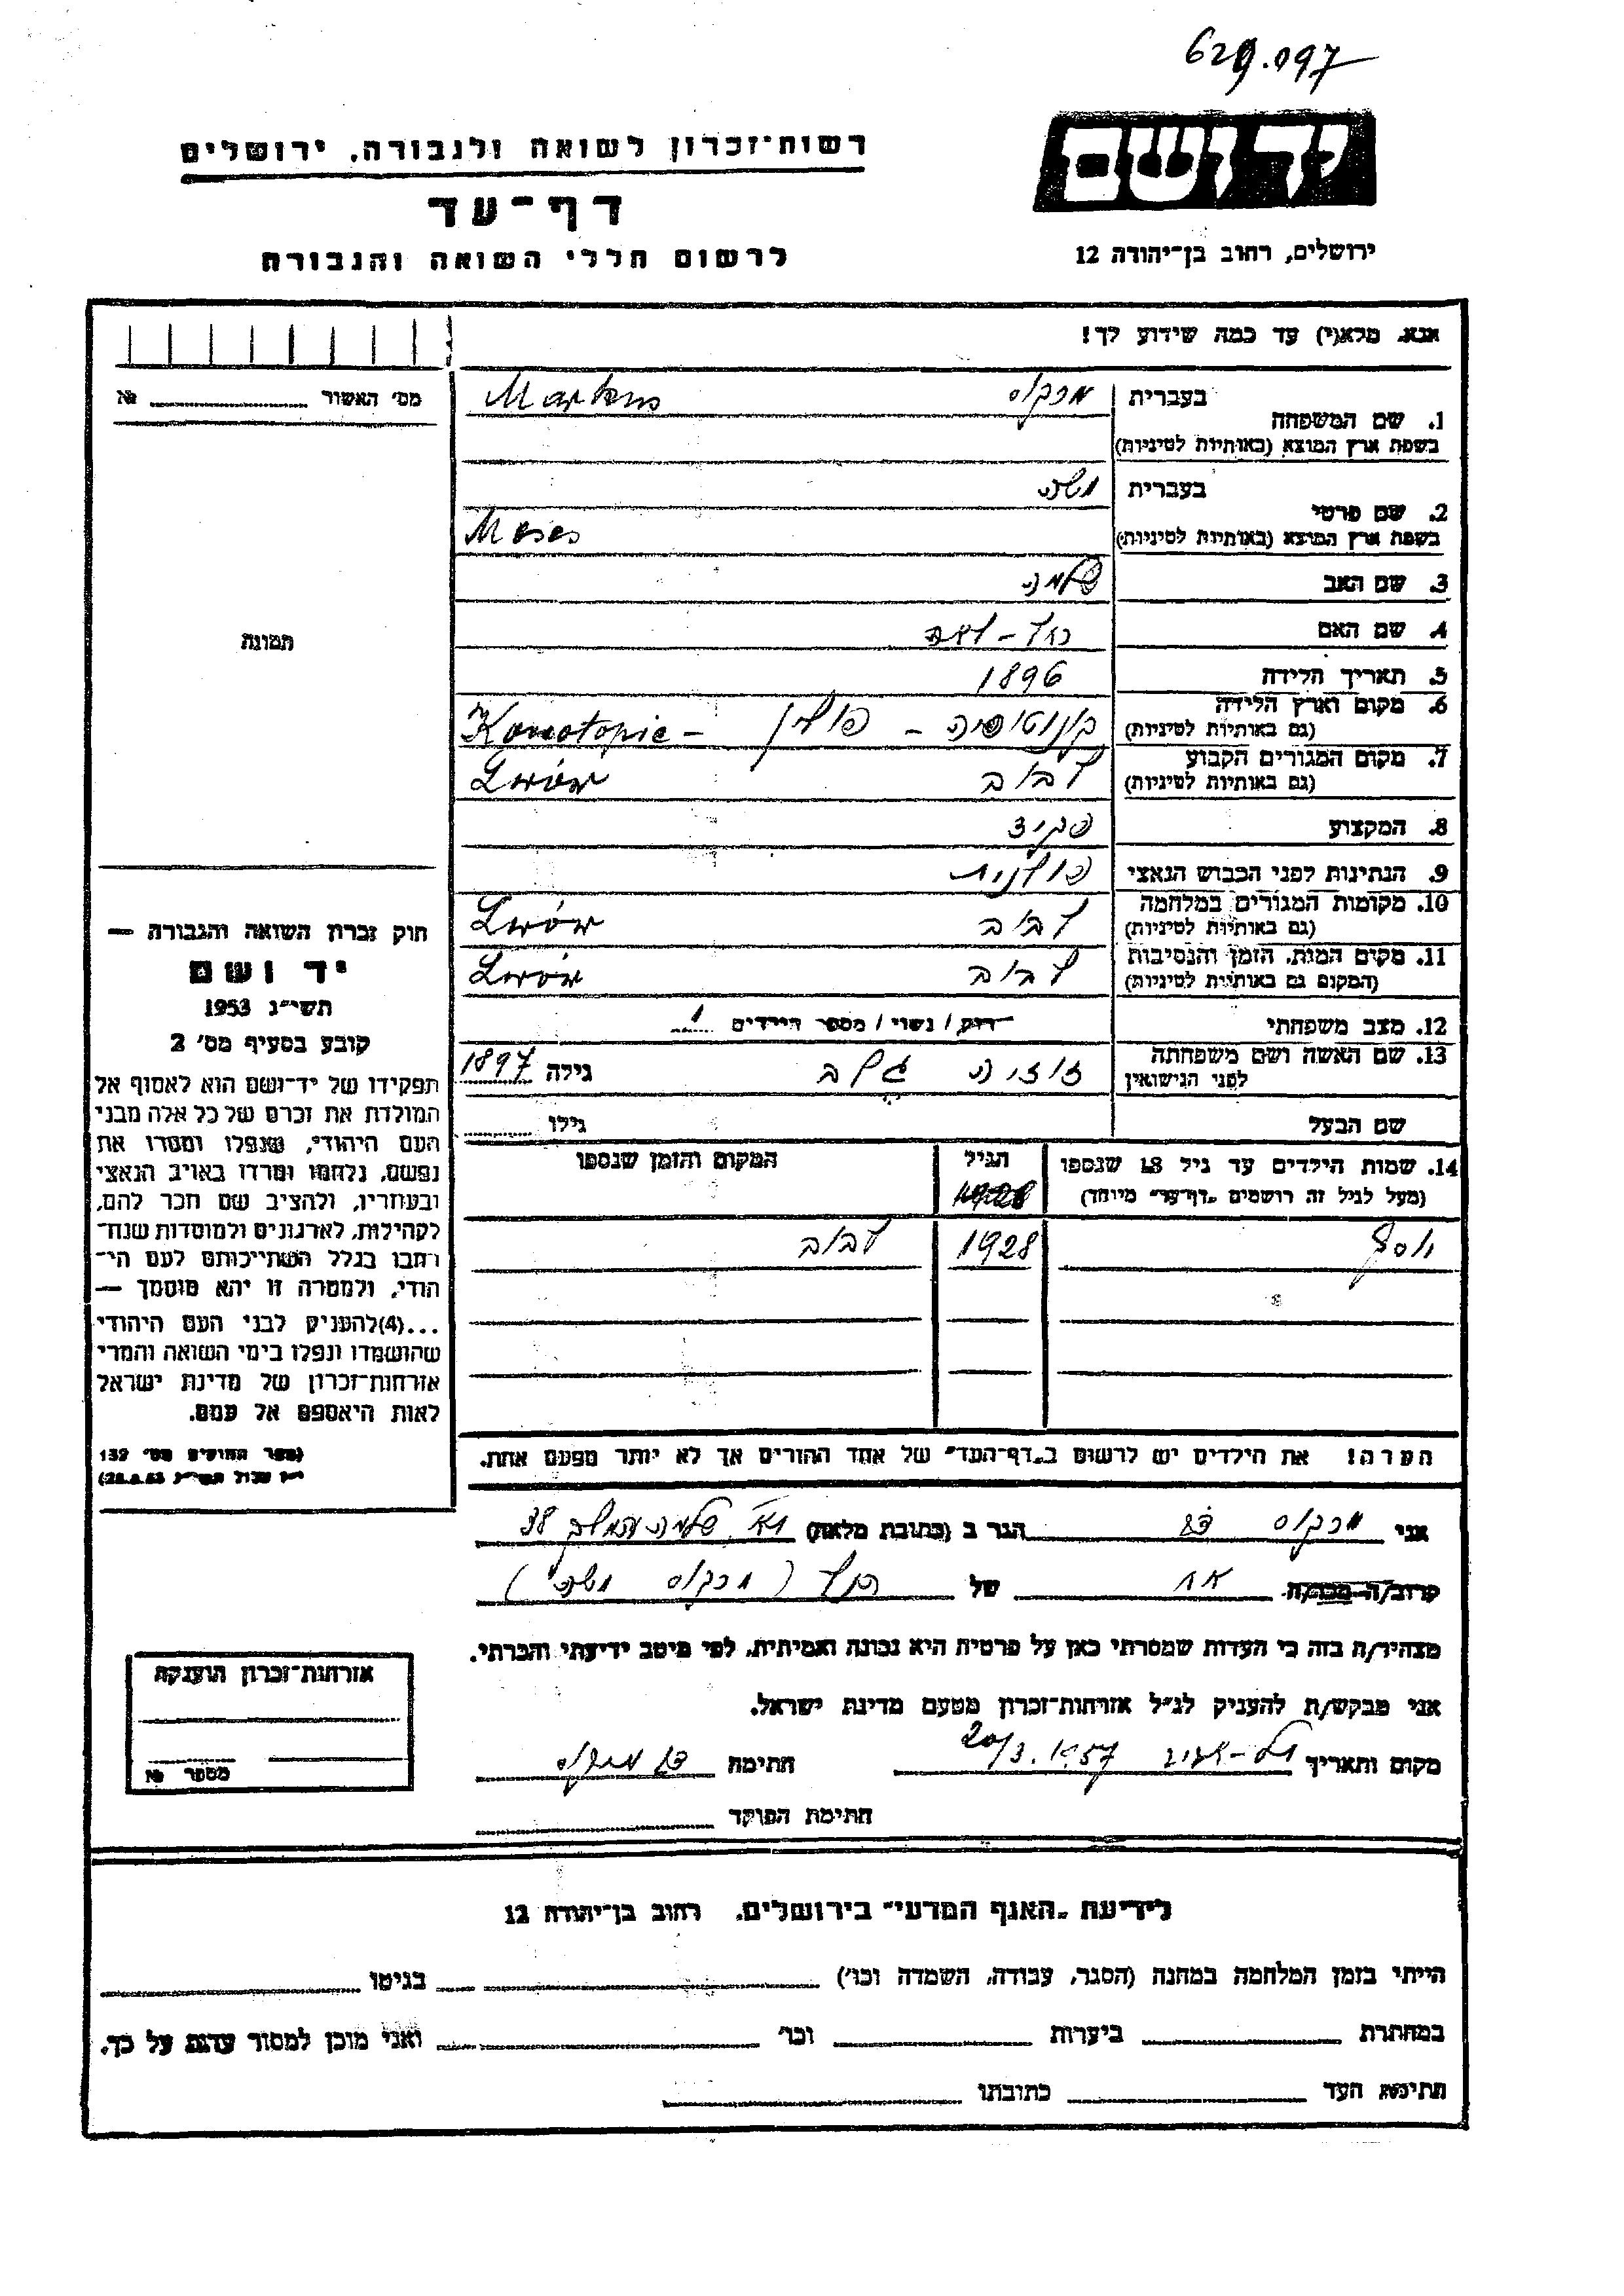 629.097
יד ושם
ירושלים, רחוב בן־יהודה 12
רשות־זכרון לשואה ולגבורה, ירושלים
דף־עד
לרשום חללי השואה והגבורה
אנא, מלא(י) עד כמה שידוע לך!
מס׳ האשור №
1. שם המשפחה בעברית מרקוס Markus
בשפת ארץ המוצא (באותיות לטיניות)
2. שם פרטי בעברית משה
בשפת ארץ המוצא (באותיות לטיניות) Moses
3. שם האב שלמה
4. שם האם
5. תאריך הלידה 1896
6. מקום וארץ הלידה קונוטופיה - פולין Konotopie -
(גם באותיות לטיניות)
7. מקום המגורים הקבוע לבוב Lwów
(גם באותיות לטיניות)
8. המקצוע פקיד
9. הנתינות לפני הכבוש הנאצי פולנית
10. מקומות המגורים במלחמה לבוב Lwów
(גם באותיות לטיניות)
11. מקום המות, הזמן והנסיבות לבוב Lwów
(המקום גם באותיות לטיניות)
12. מצב משפחתי רווק / נשוי / מספר הילדים 1
13. שם האשה ושם משפחתה גילה 1897
לפני הנישואין
שם הבעל גילו
14. שמות הילדים עד גיל 18 שנספו הגיל המקום והזמן שנספו
(מעל לגיל זה רושמים „דף־עד״ מיוחד)
יוסף 1928 לבוב
הערה! את הילדים יש לרשום ב„דף־העד״ של אחד ההורים אך לא יותר מפעם אחת.
תמונה
חוק זכרון השואה והגבורה —
יד ושם
תשי״ג 1953
קובע בסעיף מס׳ 2
תפקידו של יד־ושם הוא לאסוף אל
המולדת את זכרם של כל אלה מבני
העם היהודי, שנפלו ומסרו את
נפשם, נלחמו ומרדו באויב הנאצי
ובעוזריו, ולהציב שם וזכר להם,
לקהילות, לארגונים ולמוסדות שנח־
רבו בגלל השתייכותם לעם הי־
הודי, ולמטרה זו יהא מוסמך —
...(4) להעניק לבני העם היהודי
שהושמדו ונפלו בימי השואה והמרי
אזרחות־זכרון של מדינת ישראל
לאות היאספם אל עמם.
(ספר החוקים מס׳ 132
י״ז אלול תשי״ג 28.8.53)
אני מרקוס הגר ב (כתובת מלאה) שלמה המלך 38
קרוב/ה מכר/ה אח של
מצהיר/ה בזה כי העדות שמסרתי כאן על פרטיה היא נכונה ואמיתית, לפי מיטב ידיעתי והכרתי.
אני מבקש/ת להעניק לנ״ל אזרחות־זכרון מטעם מדינת ישראל.
מקום ותאריך תל-אביב 20/3.1957 חתימה מרקוס
חתימת הפוקד
אזרחות־זכרון הוענקה
מספר №
לידיעת „האגף המדעי״ בירושלים, רחוב בן־יהודה 12
הייתי בזמן המלחמה במחנה (הסגר, עבודה, השמדה וכו׳) בגיטו
במחתרת ביערות וכו׳ ואני מוכן למסור עדות על כך.
חתימת העד כתובתו